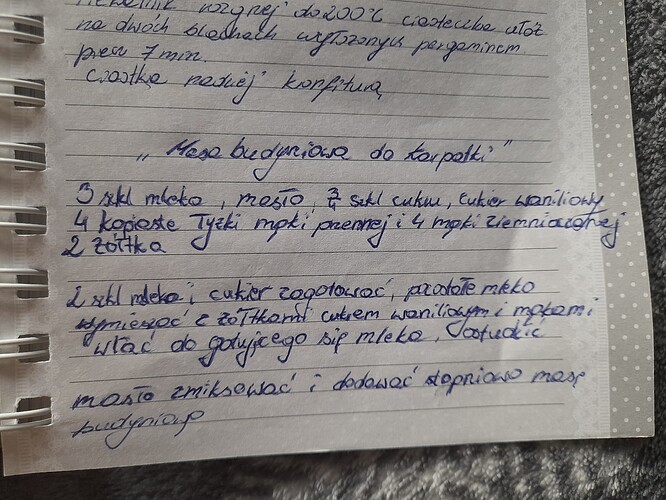 rozgrzej do 200°C ciasteczka ułóż
na dwóch blachach wyłożonych pergaminem
przez 7 min.
Ciastka nadziej konfiturą
„Masa budyniowa do karpatki"
3 szkl mleka, masło, 3/4 szkl cukru, cukier waniliowy
4 kopiaste łyżki mąki pszennej i 4 mąki ziemniaczanej
2 żółtka
2 szkl mleka i cukier zagotować, pozostałe mleko
wymieszać z żółtkami cukrem waniliowym i mąkami
wlać do gotującego się mleka, Ostudzić
masło zmiksować i dodawać stopniowo masę
budyniową